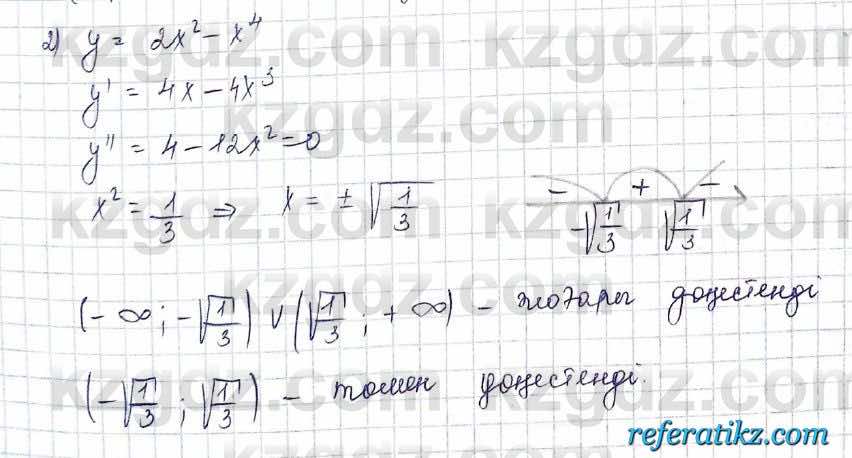 2) y = 2x² - x⁴
y' = 4x - 4x³
y'' = 4 - 12x² = 0
x² = 1/3 ⇒ x = ± √(1/3)
- + -
-√(1/3) √(1/3)
(-∞; -√(1/3)) ∪ (√(1/3); +∞) - жоғары дөңестенді
(-√(1/3); √(1/3)) - төмен дөңестенді.
kzgdz.com
referatikz.com